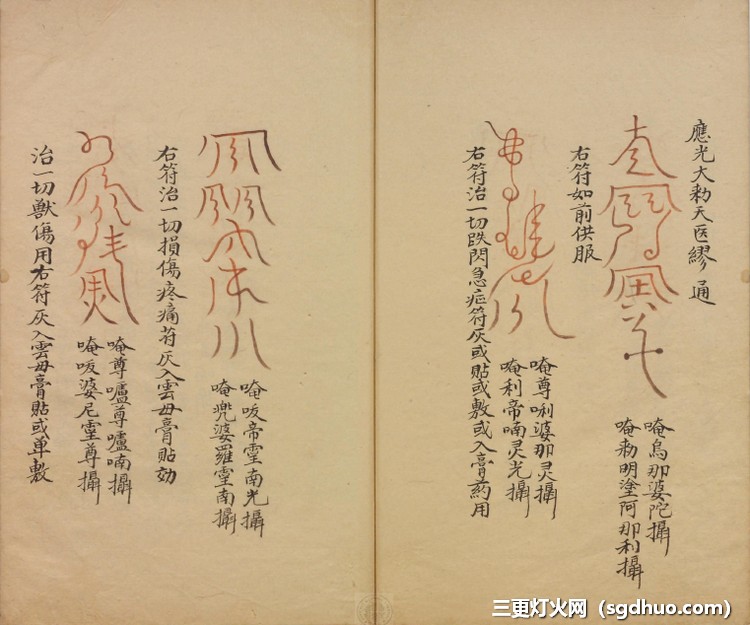 應光大勅天医繆通
唵烏那婆陀攝
唵勅明塗阿那利攝
右符如前供服
唵尊唎婆那灵攝
唵利帝喃灵光攝
右符治一切跌閃急症符灰或貼或敷或入膏药用
唵吺帝䨩南光攝
唵兜婆羅䨩南攝
右符治一切損傷疼痛符灰入雲母膏貼効
唵尊嚧尊嚧喃攝
唵吺婆尼䨩尊攝
治一切獸傷用右符灰入雲母膏貼或单敷
三更灯火网（sgdhuo.com）